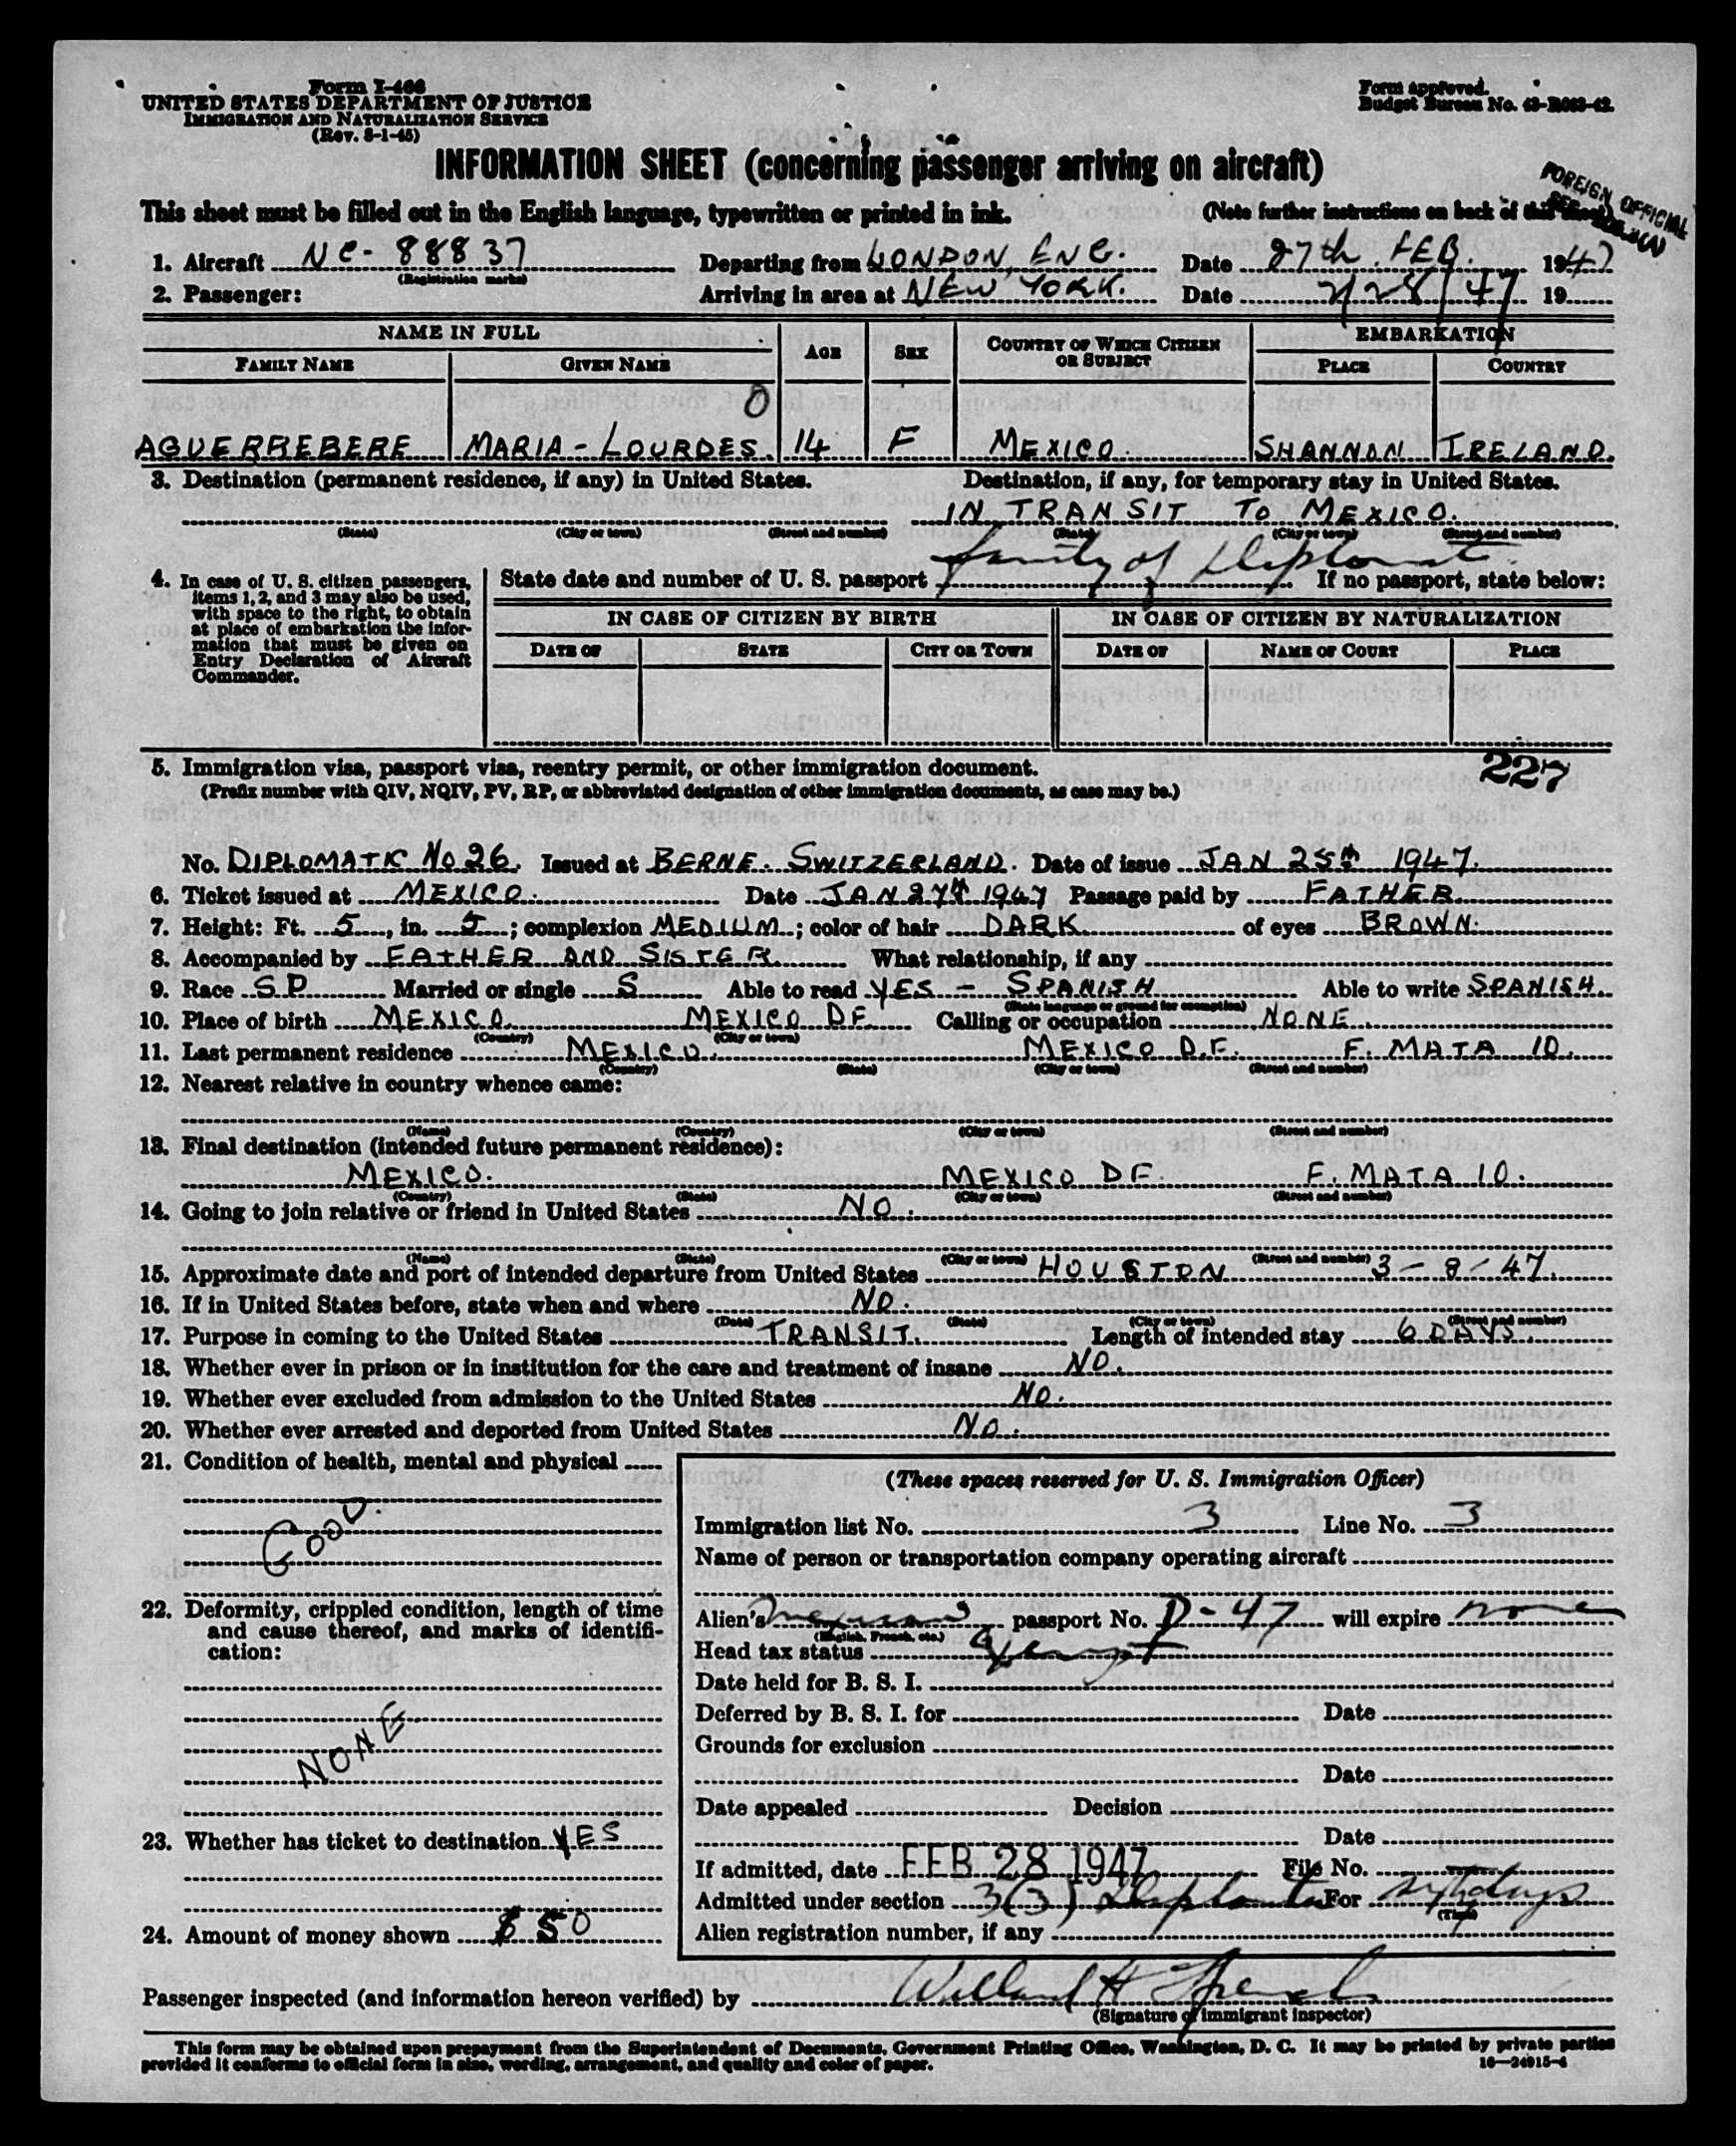 Form I-466
UNITED STATES DEPARTMENT OF JUSTICE
IMMIGRATION AND NATURALIZATION SERVICE
(Rev. 8-1-45)
Form approved.
Budget Bureau No. 43-R063-42.
INFORMATION SHEET (concerning passenger arriving on aircraft)
FOREIGN OFFICIAL
This sheet must be filled out in the English language, typewritten or printed in ink. (Note further instructions on back of this sheet)
1. Aircraft NC-88837 Departing from LONDON, ENG. Date 27th FEB. 1947
(Registration marks)
2. Passenger: Arriving in area at NEW YORK. Date 2/28/47 19
NAME IN FULL AGE SEX COUNTRY OF WHICH CITIZEN OR SUBJECT EMBARKATION
FAMILY NAME GIVEN NAME PLACE COUNTRY
0
AGUERREBERE MARIA-LOURDES. 14 F MEXICO. SHANNON IRELAND.
3. Destination (permanent residence, if any) in United States. Destination, if any, for temporary stay in United States.
IN TRANSIT TO MEXICO.
(State) (City or town) (Street and number) (State) (City or town) (Street and number)
family of Diplomat
4. In case of U. S. citizen passengers, items 1, 2, and 3 may also be used, with space to the right, to obtain at place of embarkation the information that must be given on Entry Declaration of Aircraft Commander.
State date and number of U. S. passport If no passport, state below:
IN CASE OF CITIZEN BY BIRTH IN CASE OF CITIZEN BY NATURALIZATION
DATE OF STATE CITY OR TOWN DATE OF NAME OF COURT PLACE
5. Immigration visa, passport visa, reentry permit, or other immigration document. 227
(Prefix number with QIV, NQIV, PV, RP, or abbreviated designation of other immigration documents, as case may be.)
No. DIPLOMATIC No 26. Issued at BERNE. SWITZERLAND. Date of issue JAN 25th 1947.
6. Ticket issued at MEXICO. Date JAN 27th 1947 Passage paid by FATHER.
7. Height: Ft. 5, in. 5; complexion MEDIUM; color of hair DARK of eyes BROWN.
8. Accompanied by FATHER AND SISTER What relationship, if any
9. Race SP Married or single S Able to read YES - SPANISH Able to write SPANISH.
(State language or ground for exemption)
10. Place of birth MEXICO MEXICO DF. Calling or occupation NONE
(Country) (City or town)
11. Last permanent residence MEXICO. MEXICO D.F. F. MATA 10.
(Country) (State) (City or town) (Street and number)
12. Nearest relative in country whence came:
(Name) (Country) (City or town) (Street and number)
13. Final destination (intended future permanent residence):
MEXICO. MEXICO DF. F. MATA 10.
(Country) (State) (City or town) (Street and number)
14. Going to join relative or friend in United States NO.
(Name) (State) (City or town) (Street and number)
15. Approximate date and port of intended departure from United States HOUSTON 3-8-47.
16. If in United States before, state when and where NO.
(Date) (State) (City or town) (Street and number)
17. Purpose in coming to the United States TRANSIT. Length of intended stay 6 DAYS.
18. Whether ever in prison or in institution for the care and treatment of insane NO.
19. Whether ever excluded from admission to the United States NO.
20. Whether ever arrested and deported from United States NO.
21. Condition of health, mental and physical
GOOD.
22. Deformity, crippled condition, length of time and cause thereof, and marks of identification:
NONE
23. Whether has ticket to destination YES
24. Amount of money shown $50
(These spaces reserved for U. S. Immigration Officer)
Immigration list No. 3 Line No. 3
Name of person or transportation company operating aircraft
Alien's Mexican passport No. D-47 will expire none
(English, French, etc.)
Head tax status Exempt
Date held for B. S. I.
Deferred by B. S. I. for Date
Grounds for exclusion
Date
Date appealed Decision
Date
If admitted, date FEB 28 1947 File No.
Admitted under section 3(3) For days
(Time)
Alien registration number, if any
Passenger inspected (and information hereon verified) by
(Signature of immigrant inspector)
This form may be obtained upon prepayment from the Superintendent of Documents, Government Printing Office, Washington, D. C. It may be printed by private parties
provided it conforms to official form in size, wording, arrangement, and quality and color of paper. 16—24915-4